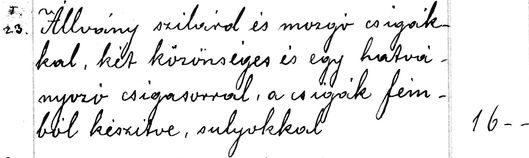 I. Állvány szilárd és mozgó csigák-
23. kal, két közönséges és egy hatvá-
nyozó csigasorral, a csigák fém-
ből készitve, sulyokkal 16 - -